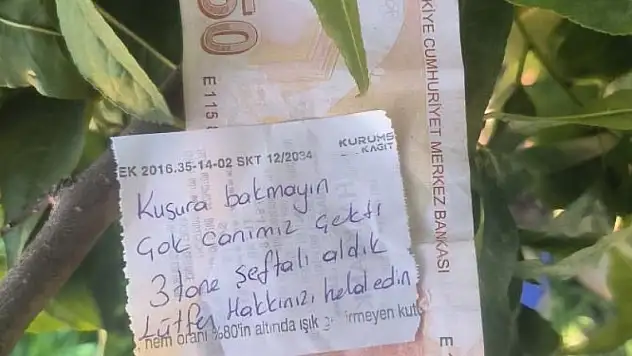 50
E 115
KİYE CUMHURİYET MERKEZ BANKASI
E
EK 2016.35-14-02 SKT 12/2034
KURUMS
KAĞIT
Kusura bakmayın
Çok canımız çekti
3 tane şeftali aldık
Lütfen Hakkınızı helal edin
nem oranı %80'in altında ışık irmeyen kutu